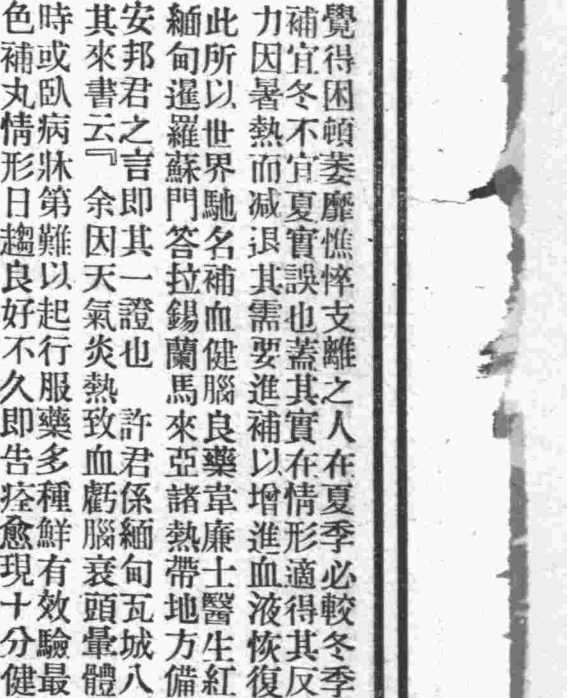 覺得困頓萎靡憔悴支離之人在夏季必較冬季
補宜冬不宜夏實誤也蓋其實在情形適得其反
力因暑熱而減退其需要進補以增進血液恢復
此所以世界馳名補血健腦良藥韋廉士醫生紅
緬甸暹羅蘇門答拉錫蘭馬來亞諸熱帶地方備
安邦君之言即其一證也　許君係緬甸瓦城八
其來書云『余因天氣炎熱致血虧腦衰頭暈體
時或臥病牀第難以起行服藥多種鮮有效驗最
色補丸情形日趨良好不久即告痊愈現十分健